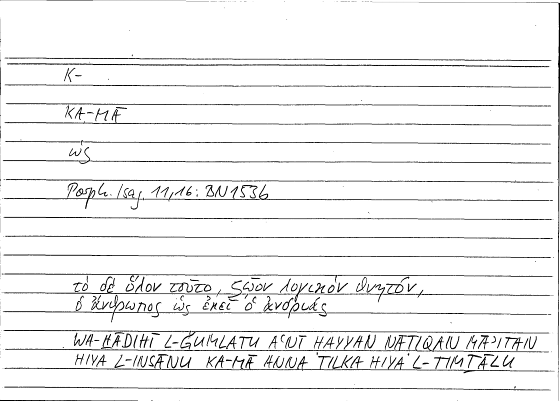 K-
KA-MĀ
ὡς
Porph. Isag. 11,16: BN 153b
τὸ δὲ ὅλον τοῦτο, ζῷον λογικόν θνητόν,
ὁ ἄνθρωπος ὡς ἐκεῖ ὁ ἀνδριάς
WA-HĀḎIHĪ L-ǦUMLATU AʿNĪ ḤAYYAN NĀṬIQAN MĀʾITAN
HIYA L-INSĀNU KA-MĀ ANNA TILKA HIYA L-TIMṮĀLU